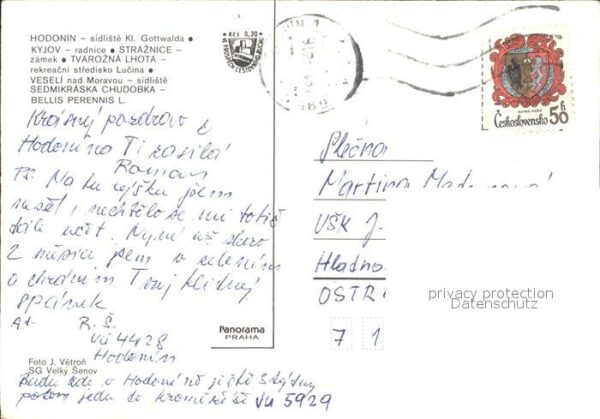 HODONÍN – sídliště Kl. Gottwalda •
KYJOV – radnice • STRÁŽNICE –
zámek • TVAROŽNÁ LHOTA –
rekreační středisko Lučina •
VESELÍ nad Moravou – sídliště
SEDMIKRÁSKA CHUDOBKA –
BELLIS PERENNIS L.
Kčs 0,20
Krásný pozdrav z
Hodonína Ti zasílá
Roman
PS. Na tu vejšku jsem
totiž
dále učit. Nyní už skoro
2 měsíce jsem v zeleném
a chráním Tvůj klidný
spánek
R. Š.
VÚ 4428
Hodonín
Foto J. Větroň
SG Velký Šenov
Budu zde v Hodoníně ještě 3 týdny
potom jedu do Kroměříže VÚ 5929
Panorama
PRAHA
Československo 50 h
Slečna
Martina
VŠK J.
Hladno
OSTR
7 1
privacy protection
Datenschutz